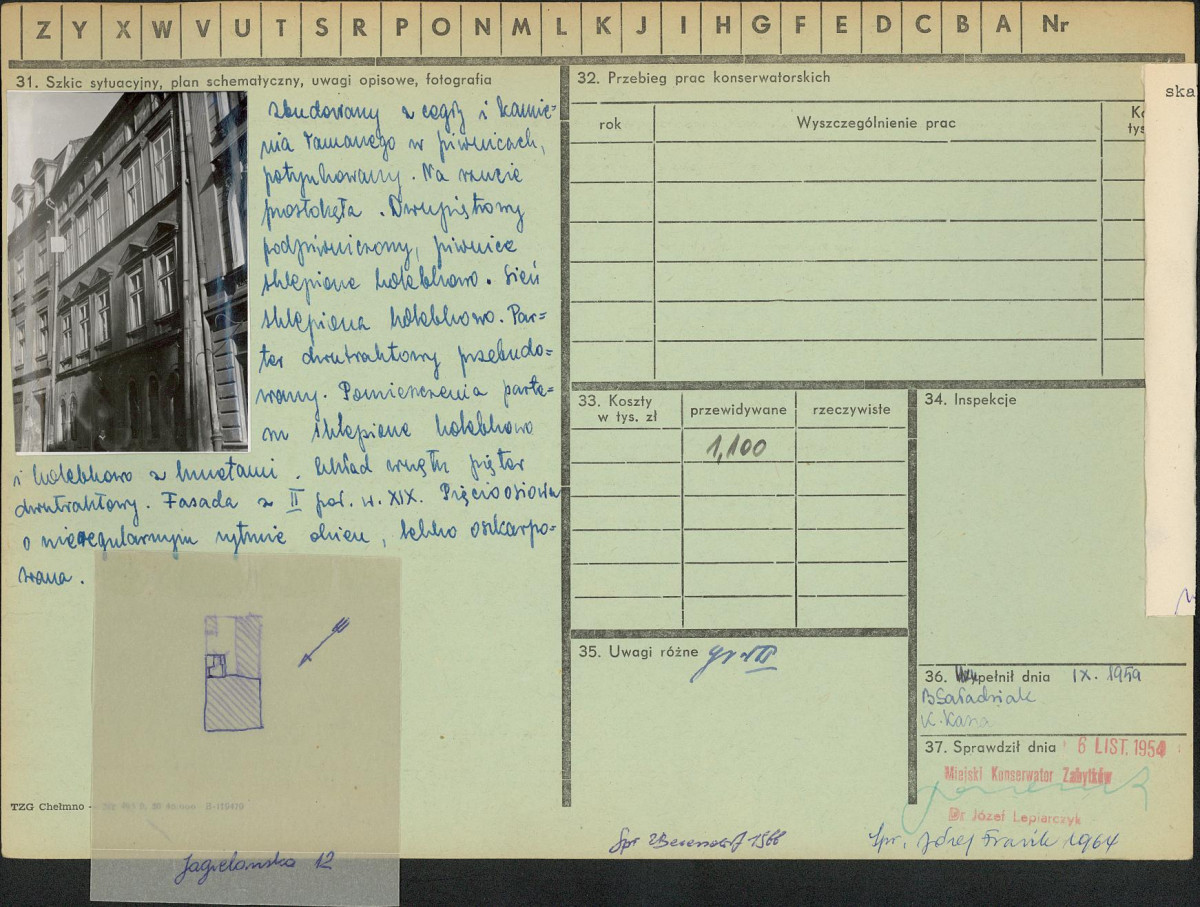 Z Y X W V U T S R P O N M L K J I H G F E D C B A Nr
31. Szkic sytuacyjny, plan schematyczny, uwagi opisowe, fotografia
zbudowany z cegły i kamie=
nia łamanego w piwnicach,
potynkowany. Na rzucie
prostokąta. Dwupiętrowy
podpiwniczony, piwnice
sklepione kolebkowo. Sień
sklepiona kolebkowo. Par=
ter dwutraktowy przebudo=
wany. Pomieszczenia parte=
ru sklepione kolebkowo
i kolebkowo z lunetami. Układ wnętrz pięter
dwutraktowy. Fasada z II poł. w. XIX. Pięcioosiowa
o nieregularnym rytmie okien, lekko oskarpo=
wana.
Jagielońska 12
TZG Chełmno -
32. Przebieg prac konserwatorskich
rok
Wyszczególnienie prac
Ko
tys
ska
33. Koszty
w tys. zł
przewidywane
rzeczywiste
1,100
34. Inspekcje
35. Uwagi różne
gr
III
36. Wypełnił dnia IX. 1959
K. Kasa
37. Sprawdził dnia 6 LIST. 1954
Miejski Konserwator Zabytków
Dr Józef Lepiarczyk
Spr
1966
Spr. Józef Franik 1964